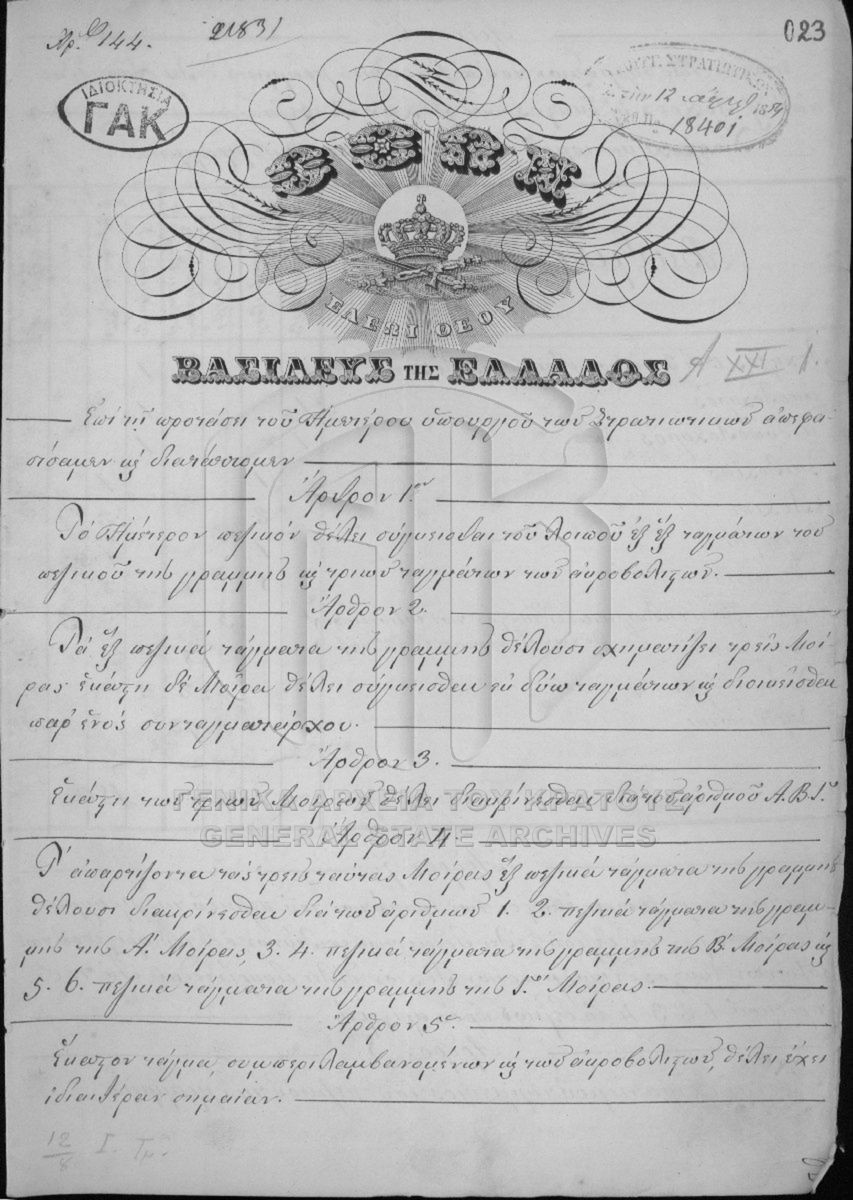 Ἀρ. 144.
21831
023
ΙΔΙΟΚΤΗΣΙΑ
ΓΑΚ
12
18401
ΟΘΩΝ
ΕΛΕΩΙ ΘΕΟΥ
ΒΑΣΙΛΕΥΣ ΤΗΣ ΕΛΛΑΔΟΣ
A XXI 1.
Ἐπὶ τῇ προτάσει τοῦ Ἡμετέρου ὑπουργοῦ τῶν Στρατιωτικῶν ἀπεφα-
σίσαμεν καὶ διατάττομεν
Ἄρθρον 1ον
Τό Ἡμέτερον πεζικόν θέλει σύγκεισθαι τοῦ λοιποῦ ἐξ ἕξ ταγμάτων τοῦ
πεζικοῦ τῆς γραμμῆς καὶ τριῶν ταγμάτων τῶν ἀκροβολιστῶν.
Ἄρθρον 2.
Τά ἕξ πεζικά τάγματα τῆς γραμμῆς θέλουσι σχηματίζει τρεῖς Μοί-
ρας ἑκάστη δέ Μοῖρα θέλει σύγκεισθαι ἐκ δύω ταγμάτων καὶ διοικεῖσθαι
παρ' ἑνός συνταγματάρχου.
Ἄρθρον 3.
Ἑκάστη τῶν τριῶν Μοιρῶν θέλει διακρίνεσθαι διά τοῦ ἀριθμοῦ Α. Β. Γ.
ΓΕΝΙΚΑ ΑΡΧΕΙΑ ΤΟΥ ΚΡΑΤΟΥΣ
GENERAL STATE ARCHIVES
Ἄρθρον 4
Τ' ἀπαρτίζοντα τάς τρεῖς ταύτας Μοίρας ἕξ πεζικά τάγματα τῆς γραμμῆς
θέλουσι διακρίνεσθαι διά τῶν ἀριθμῶν 1. 2. πεζικά τάγματα τῆς γραμ-
μῆς τῆς Α' Μοίρας, 3. 4. πεζικά τάγματα τῆς γραμμῆς τῆς Β' Μοίρας καὶ
5. 6. πεζικά τάγματα τῆς γραμμῆς τῆς Γ' Μοίρας.
Ἄρθρον 5ον
Ἕκαστον τάγμα, συμπεριλαμβανομένων καὶ τῶν ἀκροβολιστῶν, θέλει ἔχει
ἰδιαιτέραν σημαίαν.
12
8